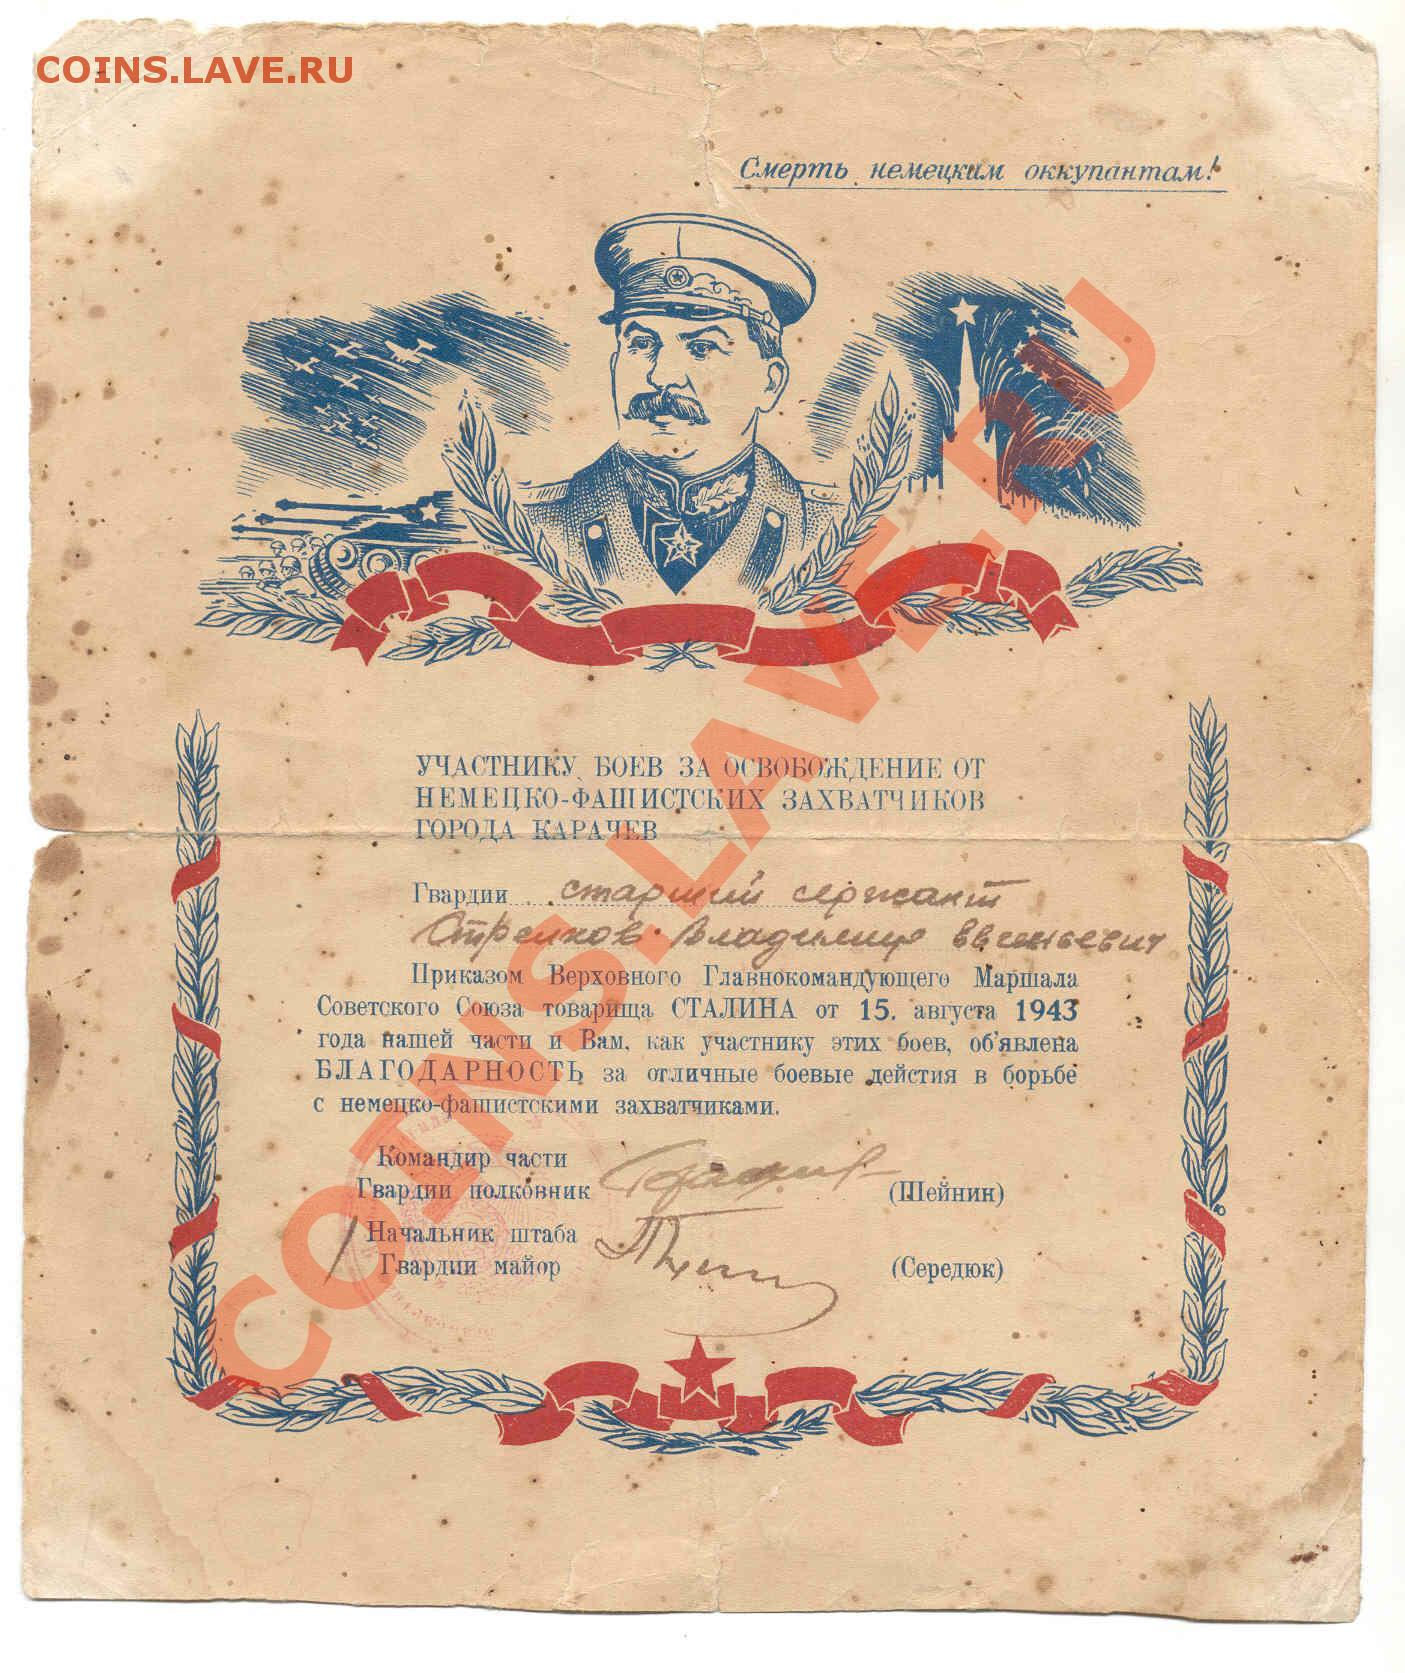 COINS.LAVE.RU
Смерть немецким оккупантам!
УЧАСТНИКУ БОЕВ ЗА ОСВОБОЖДЕНИЕ ОТ
НЕМЕЦКО-ФАШИСТСКИХ ЗАХВАТЧИКОВ
ГОРОДА КАРАЧЕВ
Гвардии старший сержант
Стрелков Владимир
Приказом Верховного Главнокомандующего Маршала
Советского Союза товарища СТАЛИНА от 15. августа 1943
года нашей части и Вам, как участнику этих боев, об'явлена
БЛАГОДАРНОСТЬ за отличные боевые дейстия в борьбе
с немецко-фашистскими захватчиками.
Командир части
Гвардии полковник (Шейнин)
Начальник штаба
Гвардии майор (Середюк)
COINS.LAVE.RU